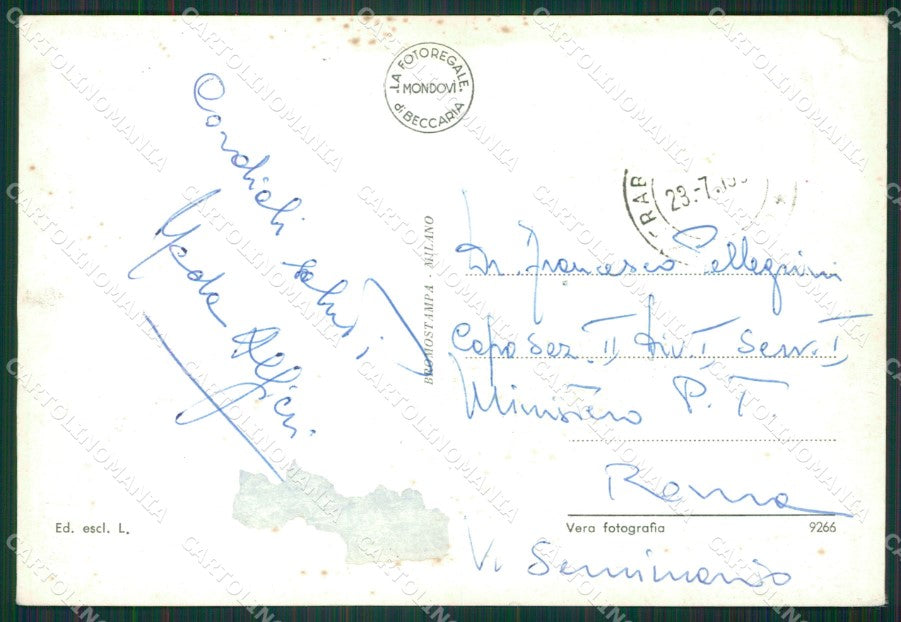 LA FOTOREGALE
MONDOVÌ
di BECCARIA
Cordiali saluti
Alfieri
BROMOSTAMPA - MILANO
23.-7.
Dr. Francesco Pellegrini
Capo Sez. II Div. I Serv. I
Ministero P. T.
Roma
V.
Ed. escl. L.
Vera fotografia
9266
CARTOLINOMANIA